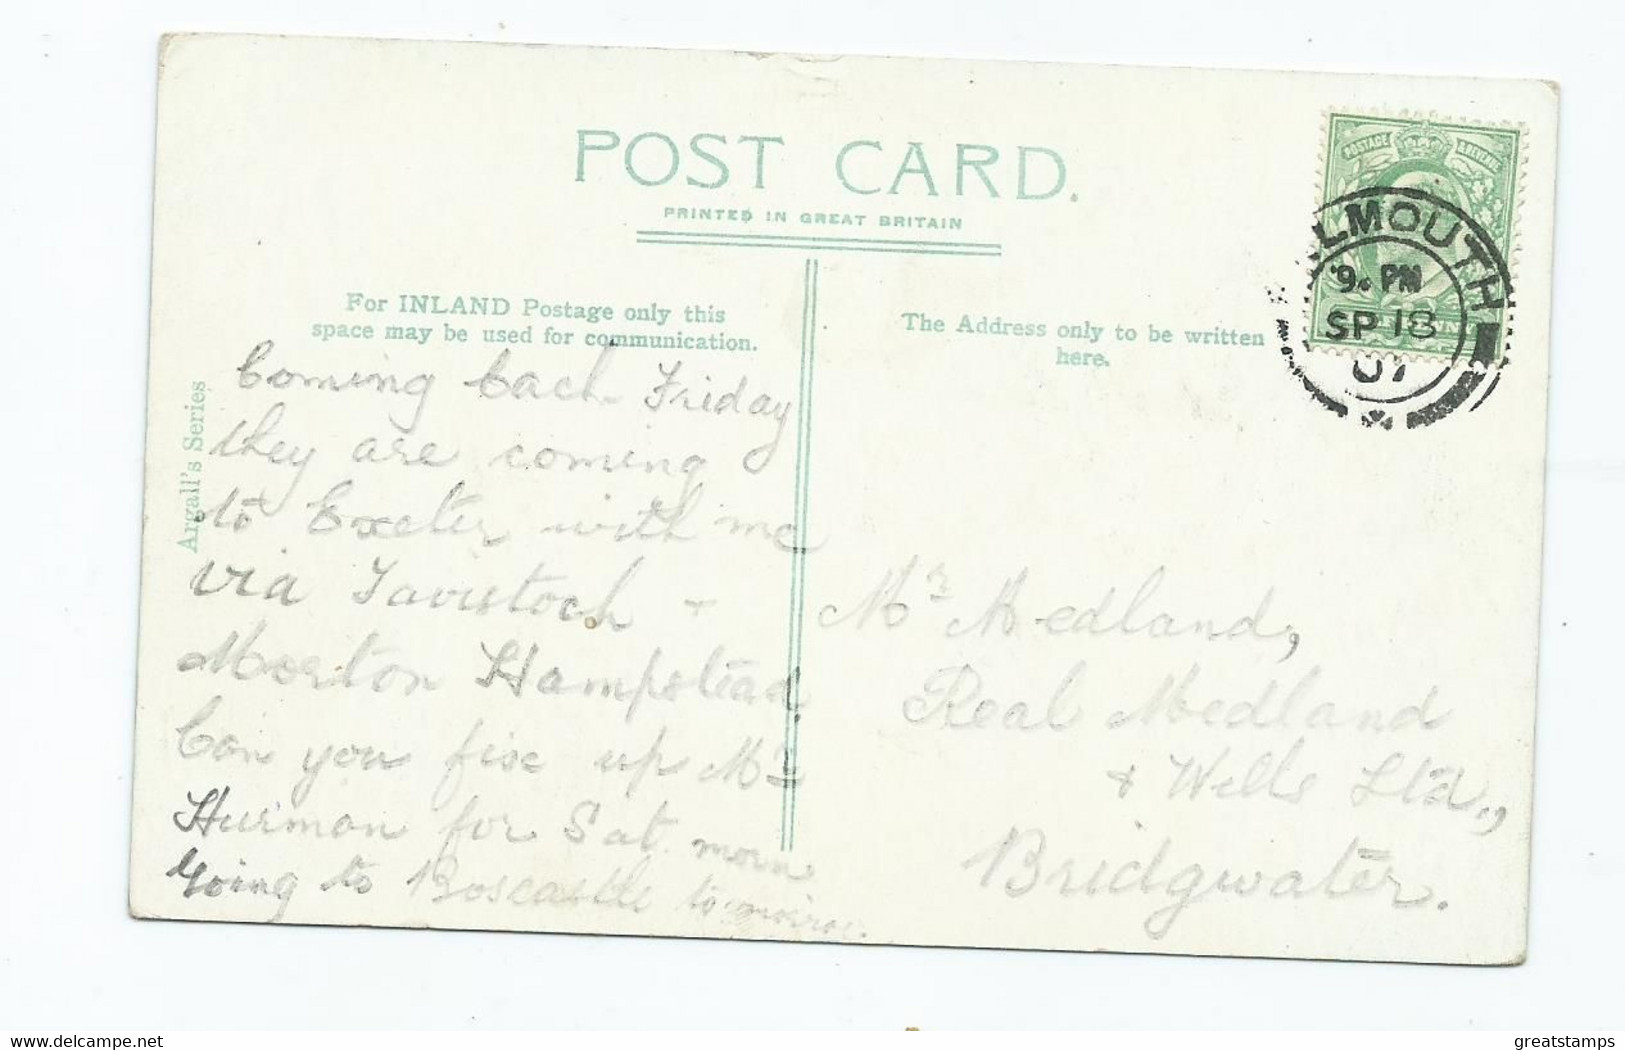 POST CARD.
PRINTED IN GREAT BRITAIN
For INLAND Postage only this
space may be used for communication.
The Address only to be written
here.
Argall's Series
POSTAGE & REVENUE
LMOUTH
9. PM
SP 18
07
Coming back Friday
they are coming
to Exeter with me
via Tavistock +
Morton Hampstead
Can you fix up Mr
Hurman for Sat morn
Going to Boscastle to
Mr Medland,
Real Medland
& Wells Ltd.,
Bridgwater.
delcampe.net
greatstamps